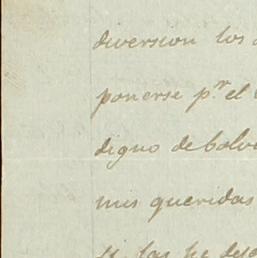 diversion los
ponerse p.r el
digno de bolv
mis queridas
si las he des